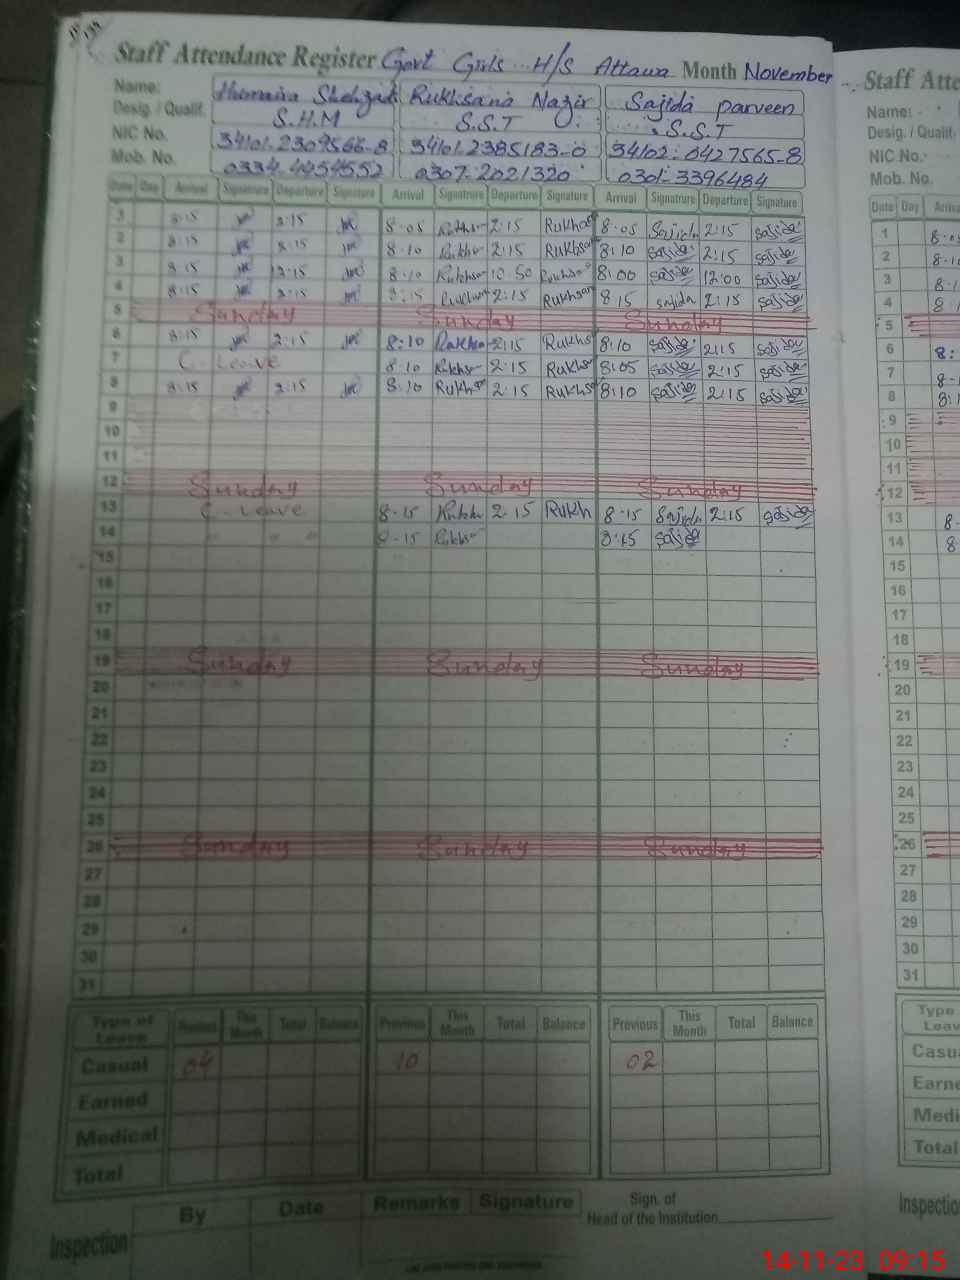 Staff Attendance Register Govt Girls H/S Attawa Month November
Name: Humaira Shehzadi Rukhsana Nazir Sajida Parveen
Desig. / Qualif. S.H.M S.S.T S.S.T
NIC No. 34101-2309566-8 34101-2385183-0 34102-0427565-8
Mob. No. 0334-4954552 0307-2021320 0301-3396484
Date Day Arrival Signature Departure Signature Arrival Signature Departure Signature Arrival Signature Departure Signature
1 8:15 2:15 8-05 2:15 Rukhsa 8-05 Sajida 2:15 Sajida
2 8:15 2:15 8-10 2:15 Rukhsa 8:10 Sajida 2:15 Sajida
3 8:15 12:15 8-10 10-50 8:00 Sajida 12:00 Sajida
4 8:15 2:15 8:15 2:15 Rukhsan 8:15 Sajida 2:15 Sajida
5 Sunday Sunday Sunday
6 8:15 2:15 8:10 2:15 Rukhs 8:10 Sajida 2:15 Sajida
7 C-Leave 8-10 2:15 Rukhsa 8:05 Sajida 2:15 Sajida
8 8:15 2:15 8:10 Rukhsa 2:15 Rukhsa 8:10 Sajida 2:15 Sajida
9
10
11
12 Sunday Sunday Sunday
13 C-Leave 8-15 2:15 Rukh 8-15 Sajida 2:15 Sajida
14 " " " 8-15 Rukhsa 8:15 Sajida
15
16
17
18
19 Sunday Sunday Sunday
20
21
22
23
24
25
26 Sunday Sunday Sunday
27
28
29
30
31
Type of Leave Previous This Month Total Balance Previous This Month Total Balance Previous This Month Total Balance
Casual 04 10 02
Earned
Medical
Total
Inspection By Date Remarks Signature
Sign. of
Head of the Institution
Staff Atte
Name:
Desig. / Qualif.
NIC No.
Mob. No.
Date Day Arriva
1 8-05
2 8-10
3
4
5
6 8:
7 8-
8
9
10
11
12
13 8-
14 8-
15
16
17
18
19
20
21
22
23
24
25
26
27
28
29
30
31
Type
Leav
Casu
Earne
Medi
Total
Inspection
14-11-23 09:15